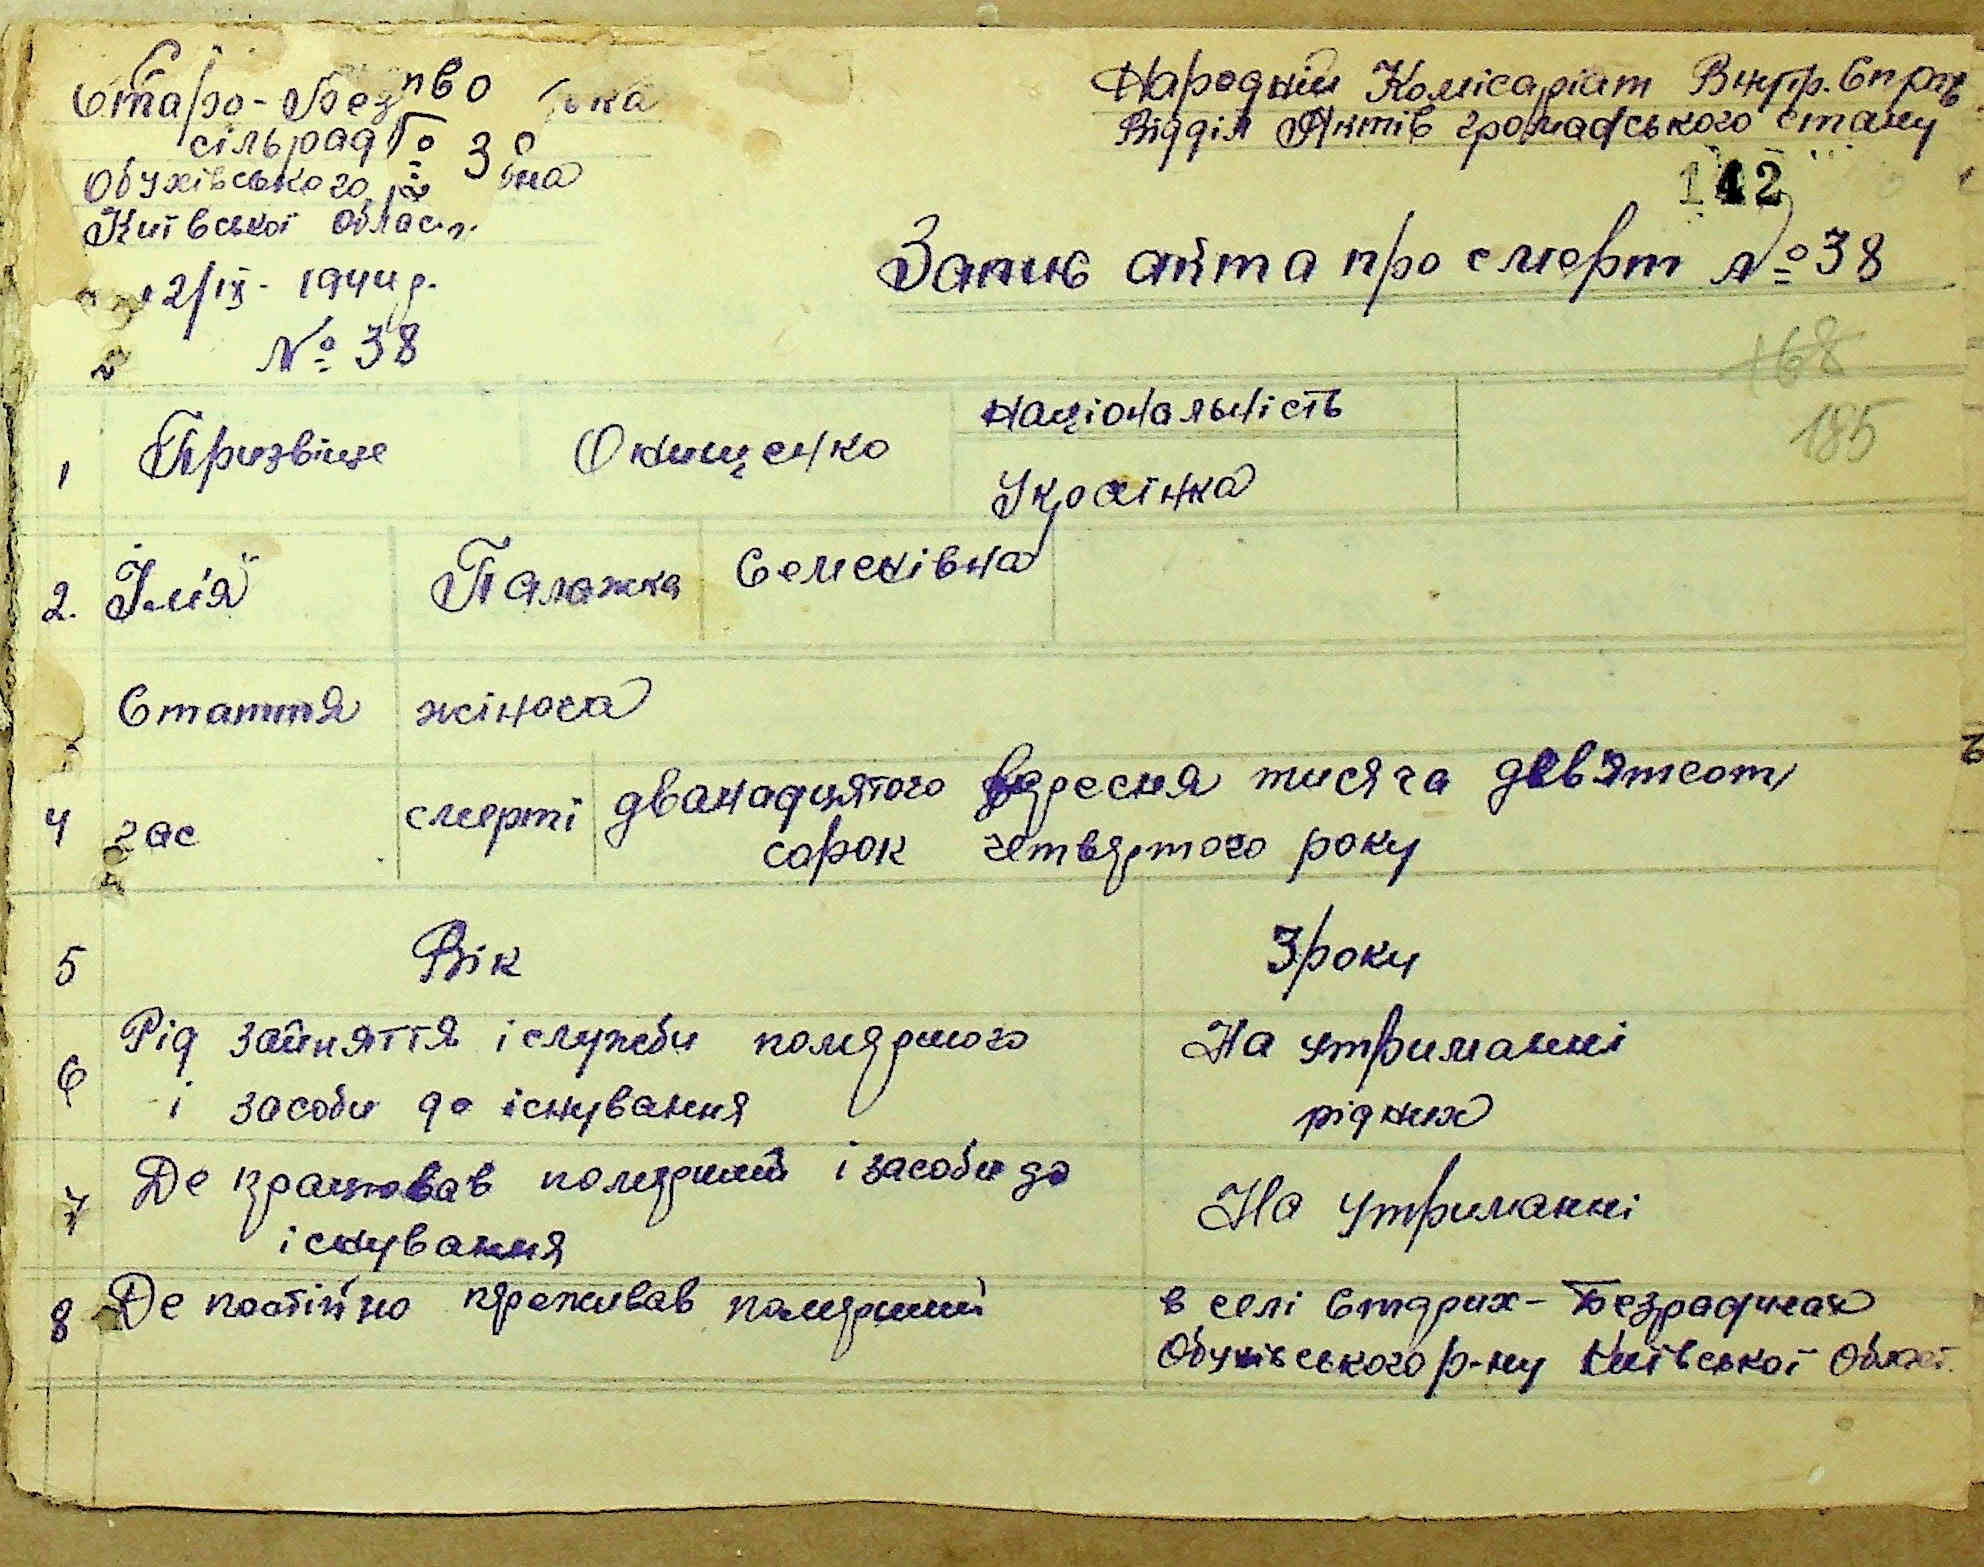 Старо-Без пво ська
сільрад № 38 она
Обухівського
Київської област.
12/ІХ- 1944 р.
№ 38
Народній Комісаріат Внутр. Справ
Відділ Актів громадського стану
142
Запис акта про смерт № 38
168
185
1 Призвіще Онищенко Національність
Українка
2. Імя Палажка Семенівна
Статтпя жіноча
4 час смерті дванадцятого вересня тисяча девятсот
сорок четвертого року
5 Вік 3 роки
6 Рід зайняття і служби помершого На утриманні
і засоби до існування рідних
7 Де працював померший і засоби до На утриманні
існування
8 Де постійно преживав померший в селі Старих-Безрадичах
Обухівського р-ну Київської Област.